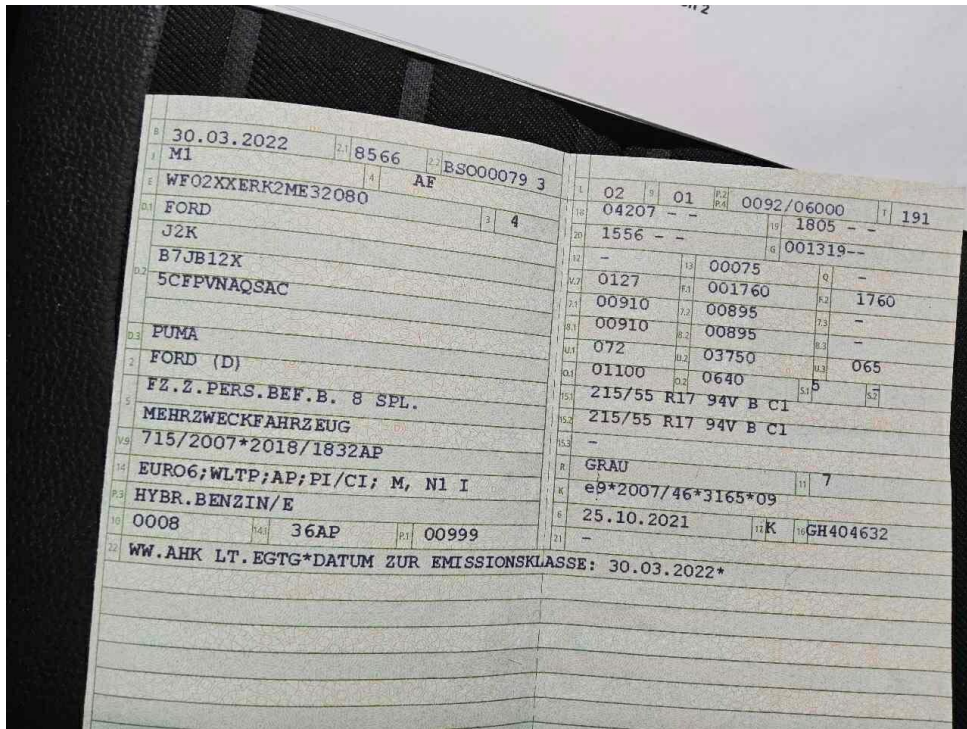 B 30.03.2022 2.1 8566 2.2 BSO000079 3
J M1 4 AF
E WF02XXERK2ME32080 3 4
D.1 FORD
J2K
D.2 B7JB12X
5CFPVNAQSAC
D.3 PUMA
2 FORD (D)
5 FZ.Z.PERS.BEF.B. 8 SPL.
MEHRZWECKFAHRZEUG
V.9 715/2007*2018/1832AP
14 EURO6;WLTP;AP;PI/CI; M, N1 I
P.3 HYBR.BENZIN/E
10 0008 14.1 36AP P.1 00999
22 WW.AHK LT.EGTG*DATUM ZUR EMISSIONSKLASSE: 30.03.2022*
L 02 9 01 P.2 P.4 0092/06000 T 191
18 04207 - - 19 1805 - -
20 1556 - - G 001319--
12 - 13 00075 Q -
V.7 0127 F.1 001760 F.2 1760
7.1 00910 7.2 00895 7.3 -
8.1 00910 8.2 00895 8.3 -
U.1 072 U.2 03750 U.3 065
O.1 01100 O.2 0640 S.1 5 S.2 -
15.1 215/55 R17 94V B C1
15.2 215/55 R17 94V B C1
15.3 -
R GRAU 11 7
K e9*2007/46*3165*09
6 25.10.2021 17 K 16 GH404632
21 -